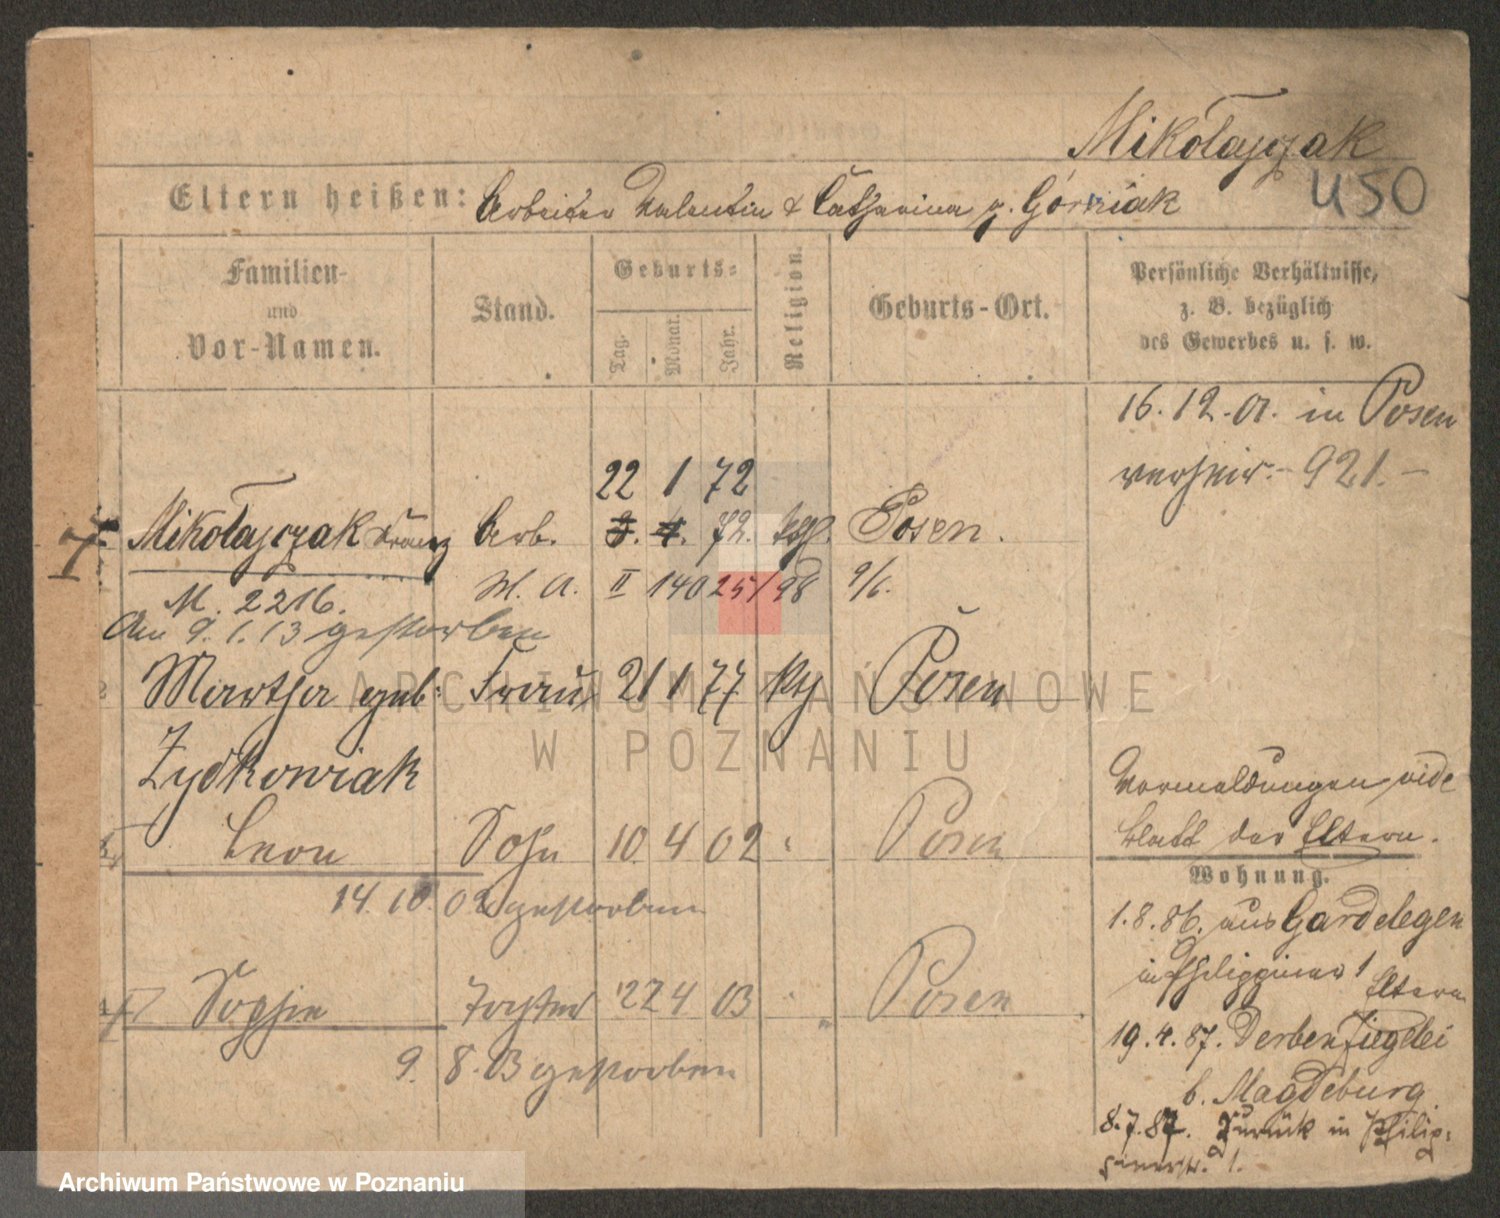 Mikołajczak
Eltern heißen: Arbeiter Valentin & Catharina g. Górniak
U50
Familien- und Vor-Namen.
Stand.
Geburts-
Tag. Monat. Jahr.
Religion.
Geburts-Ort.
Persönliche Verhältnisse,
z. B. bezüglich
des Gewerbes u. s. w.
16.12.01. in Posen
verheir. - 921. -
22 1 72
Mikołajczak Franz Arb. 3. 4. 72. kgl. Posen.
M. 2216. M. A. II 140 25/98 9/6.
Am 9. 1. 13 gestorben
Martha geb: Frau 21 1 77 Posen
Zydkowiak
Vormeldungen vide
Blatt der Eltern.
Leon Sohn 10 4 02 Posen
Wohnung.
14. 10. 02 gestorben
1.8.86. aus Gardelegen
in Philippiner 1 Eltern
Sophie Tochter 22 4 03 " Posen
19.4.87. Derben Ziegelei
b. Magdeburg
9. 8. 03 gestorben
8.7.87. Zurück in Philip-
pinerstr. 1.
ARCHIWUM PAŃSTWOWE
W POZNANIU
Archiwum Państwowe w Poznaniu